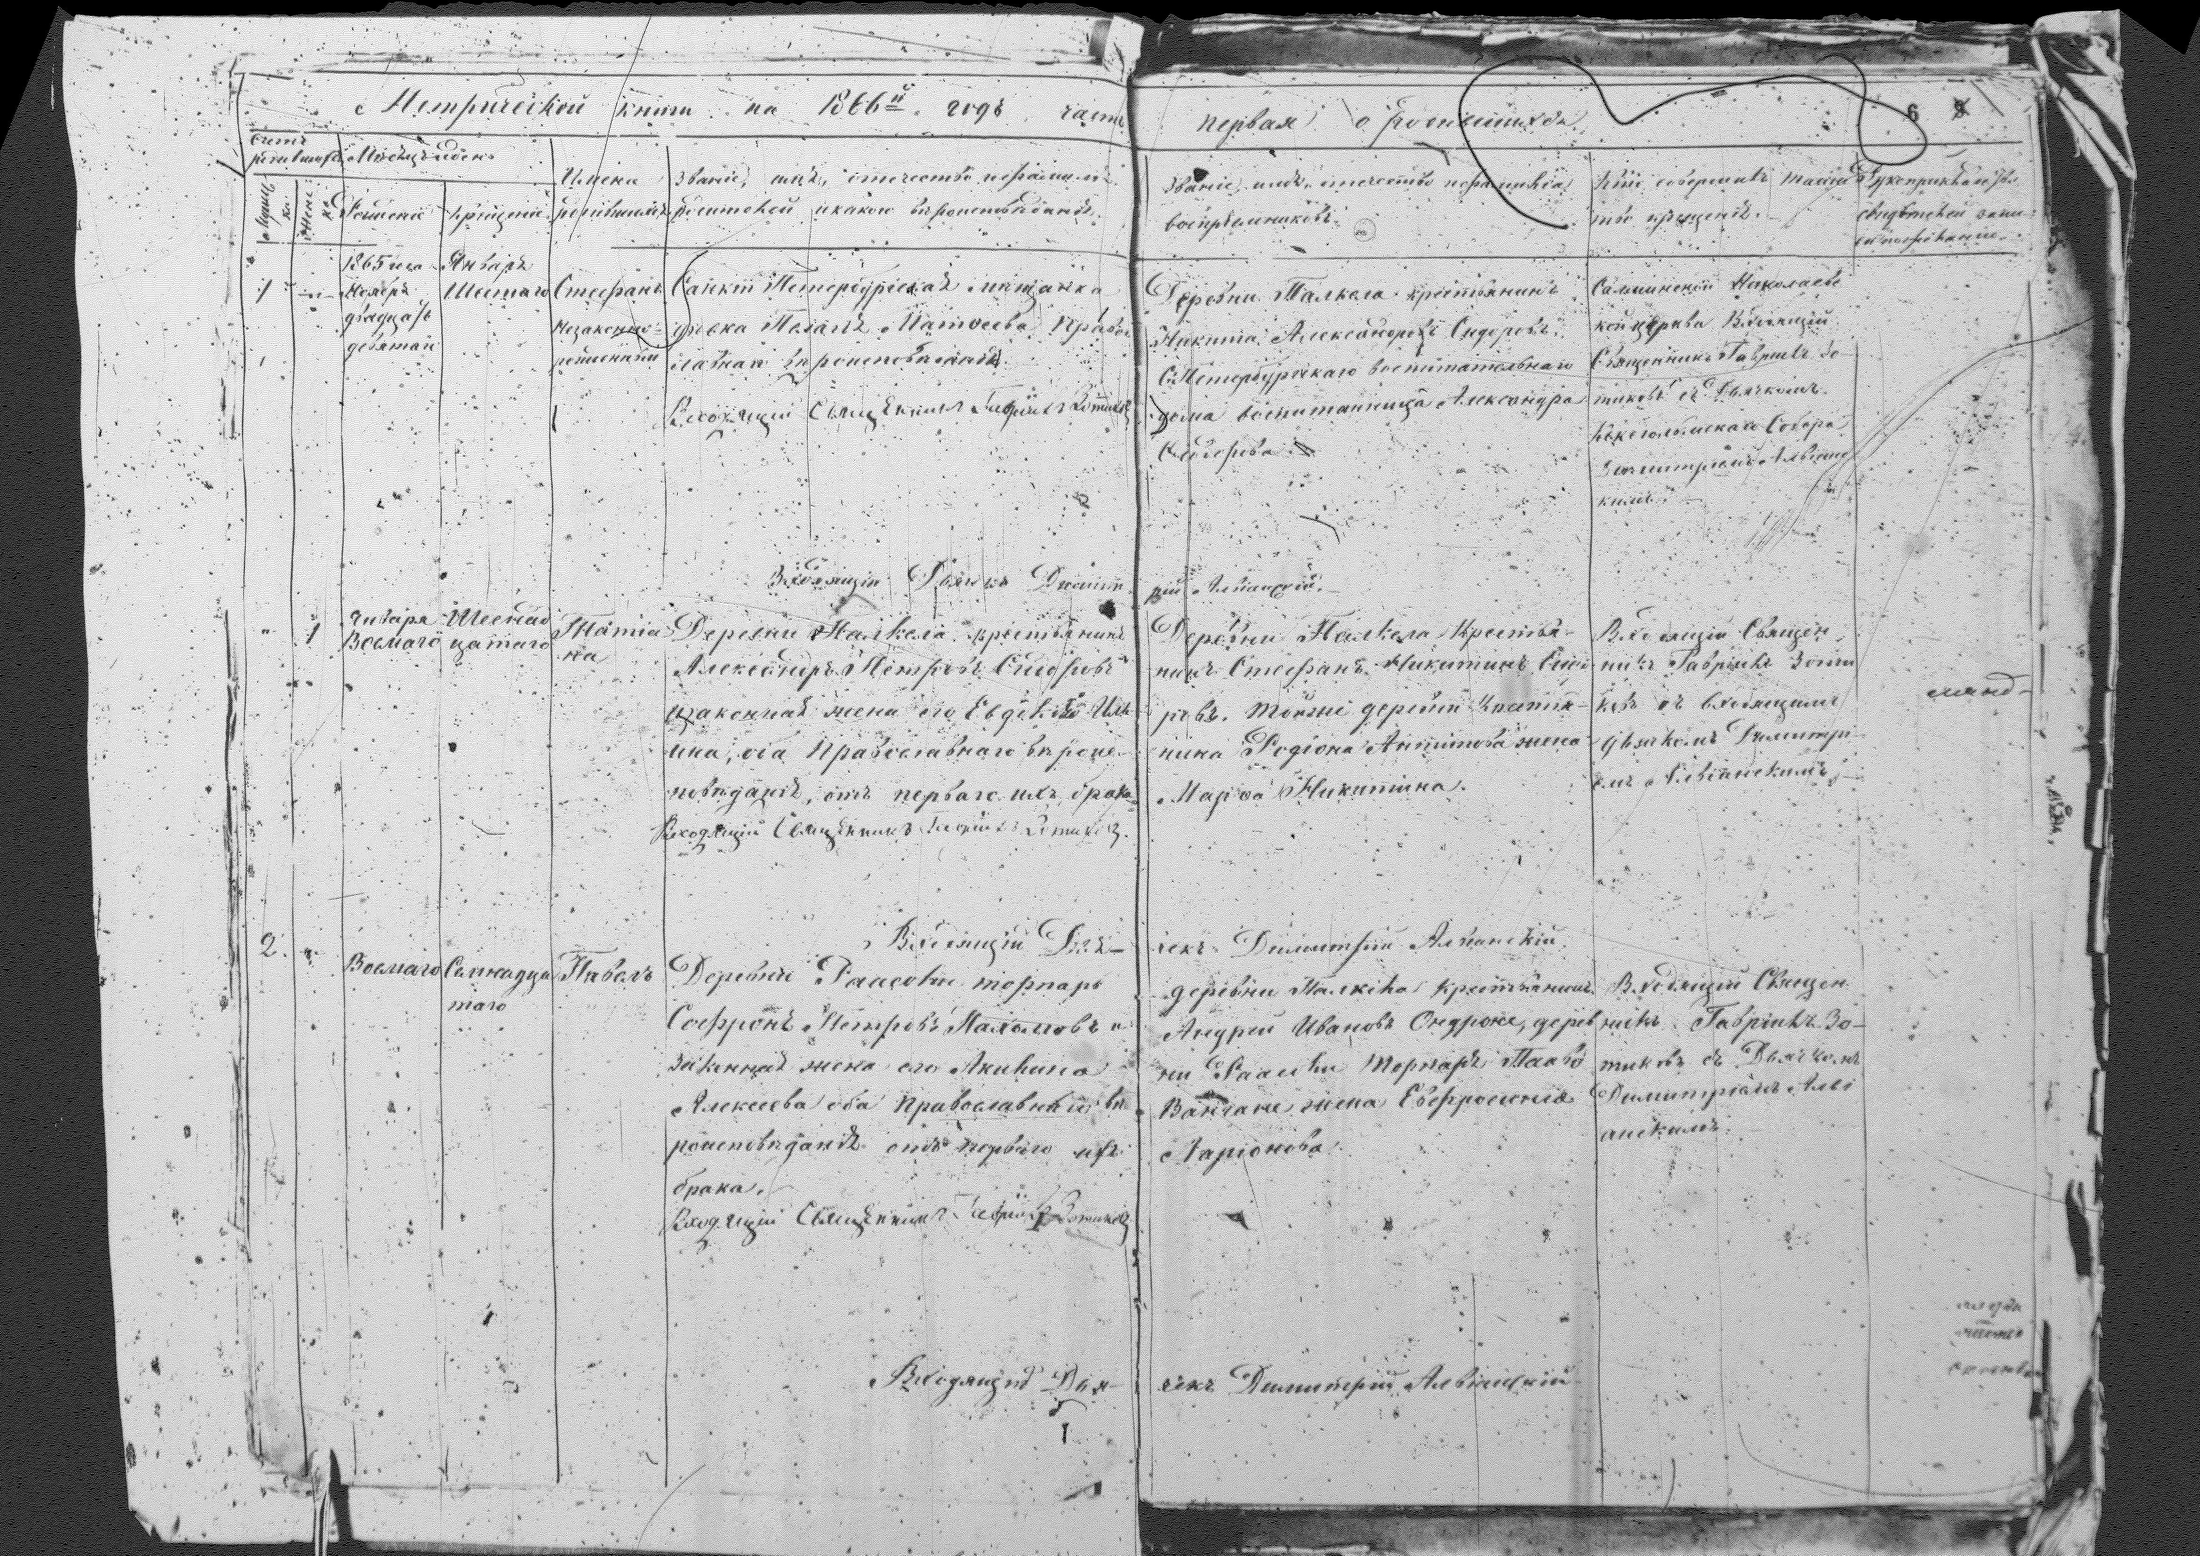 Метрической книги на 1866й годъ часть первая о родившихся.
6
Счетъ родившихся
Мѣсяцъ и день
Мужеска
Женска
Рожденія
Крещенія
Имена родившихся
Званіе, имя, отчество и фамилія
родителей и какого вѣроисповѣданія.
Званіе, имя, отчество и фамилія
воспріемниковъ.
Кто совершалъ таин
ство крещенія.
Рукоприкладство
свидѣтелей записи
по желанію.
1
1865 года
Ноября
двадцать
девятаго
Января
Шестаго
Стефанъ
Незаконно-
рожденный
Санктпетербургская мѣщанка
дѣвка Пелагія Матвеева право
славнаго вѣроисповѣданія
Входящій Священникъ Гавріилъ Зотиковъ
Деревни Палкела крестьянинъ
Никита Александровъ Сидоровъ.
С. Петербургскаго воспитательнаго
дома воспитанница Александра
Сидорова.
Салминской Николаев
ской церкви Входящій
Священникъ Гавріилъ Зо
тиковъ съ Дьячкомъ
Кексгольмскаго Собора
Димитріемъ Альбянс
кимъ.
Входящій Дьячекъ Димитрій Альбянскій.
1
Января
Восмаго
Шестнад
цатаго
Татіа
на
Деревни Палкела крестьянинъ
Александръ Петровъ Сидоровъ
и законная жена его Евдокія Иль
ина, оба Православнаго вѣроис
повѣданія, отъ перваго ихъ брака
Входящій Священникъ Гавріилъ Зотиковъ.
Деревни Палкела крестья-
нинъ Стефанъ Никитинъ Сидо
ровъ. Тойже деревни крестья-
нина Родіона Антипова жена
Марѳа Никитина.
Входящій Священ
никъ Гавріилъ Зоти
ковъ съ входящимъ
дьячкомъ Димитрі
емъ Альбянскимъ.
Входящій Дья-
чекъ Димитрій Альбянскій.
2.
Восмаго
Семнадца
таго
Павелъ
Деревни Раасови торпарь
Софронъ Петровъ Пахомовъ и
законная жена его Акилина
Алексеева оба православнаго вѣ
роисповѣданія отъ перваго ихъ
брака.
Входящій Священникъ Гавріилъ Зотиковъ
деревни Палкела крестьянинъ
Андрей Ивановъ Ондроне, дерев
ни Раасови торпаря Пааво
Ванчане жена Евфросинія
Ларіонова.
Входящій Священ
никъ Гавріилъ Зо-
тиковъ съ Дьячкомъ
Димитріемъ Альбя
анскимъ.
Входящій Дья-
чекъ Димитрій Альбянскій